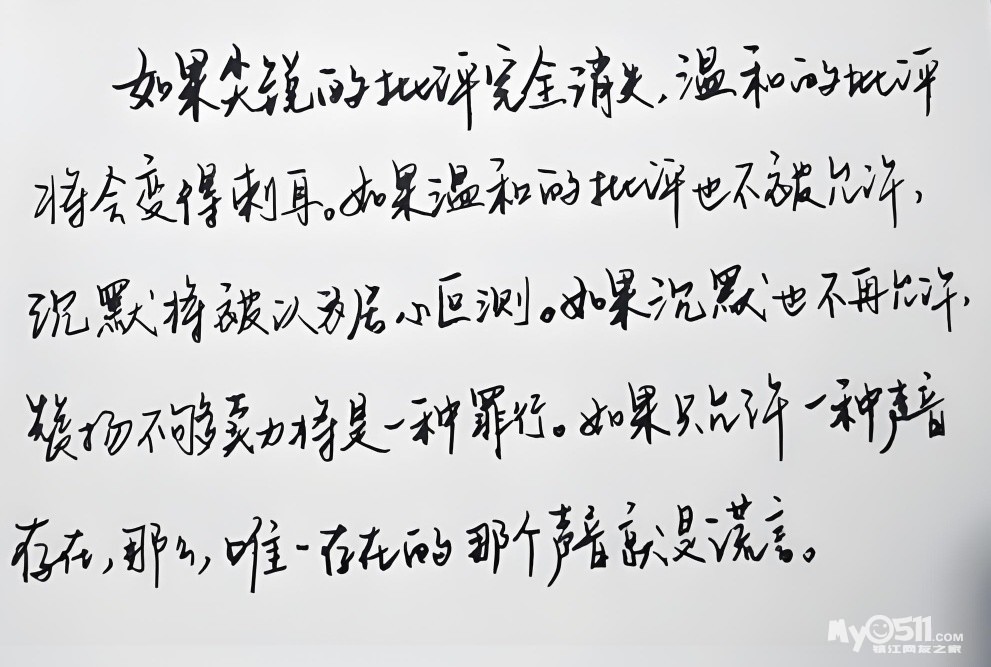 如果尖锐的批评完全消失,温和的批评
将会变得刺耳。如果温和的批评也不被允许,
沉默将被认为居心叵测。如果沉默也不再允许,
赞扬不够卖力将是一种罪行。如果只允许一种声音
存在,那么,唯一存在的那个声音就是谎言。
My0511.COM
镇江网友之家